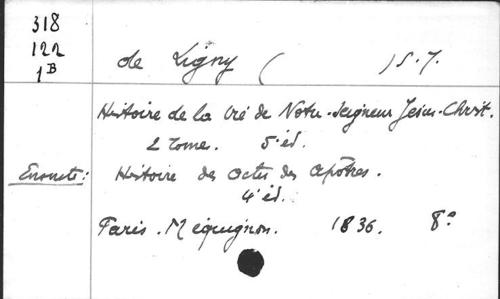 318
122
1B
de Ligny ( ) S. J.
Histoire de la Vie de Notre-Seigneur Jésus-Christ.
2 tomes. 5e éd.
Ensuite : Histoire des Actes des Apôtres.
4e éd.
Paris. Méquignon. 1836. 8°